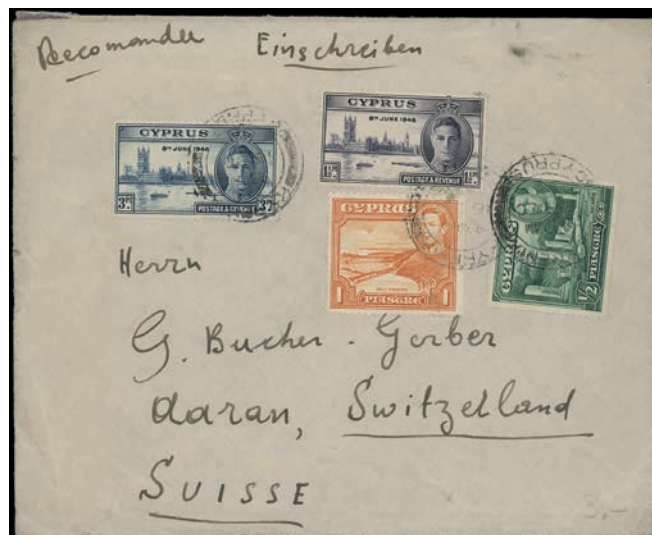 Recomandee Einschreiben
CYPRUS
8TH JUNE 1946
3P.
POSTAGE & REVENUE
3P.
CYPRUS
8TH JUNE 1946
1½P.
POSTAGE & REVENUE
1½P.
CYPRUS
1
PIASTRE
1
CYPRUS
½ PIASTRE
CYPRUS
Herrn
G. Bucher - Gerber
Aarau, Switzerland
SUISSE
3.-